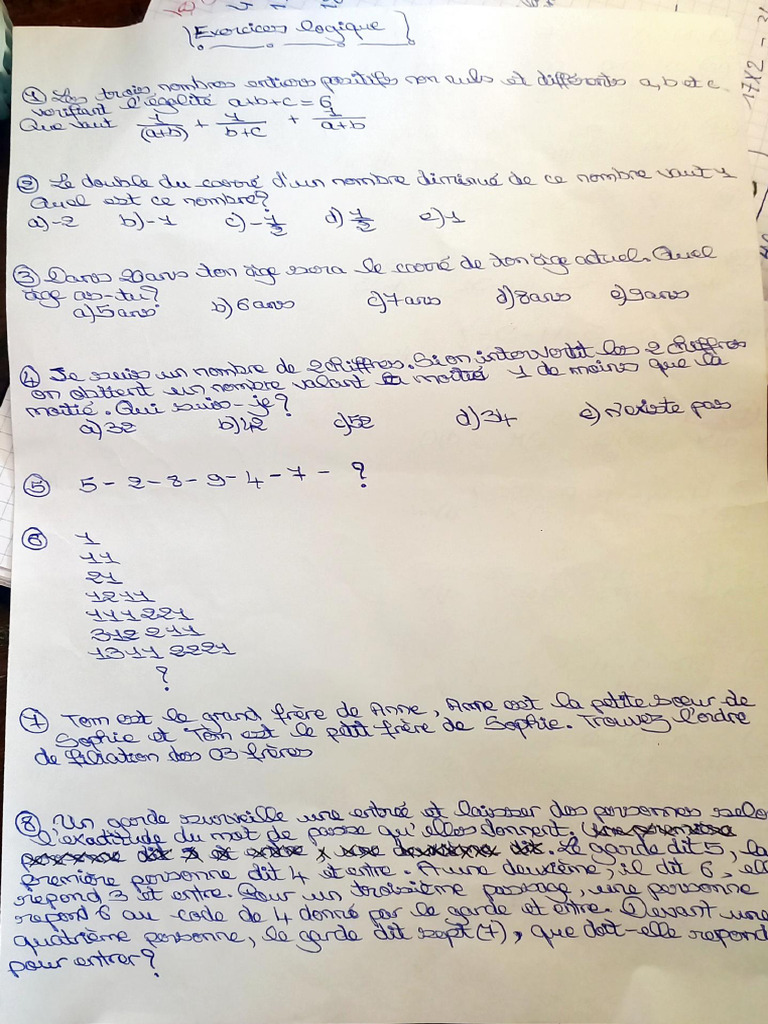 Exercices logique
① Les trois nombres entiers positifs non nuls et différents a, b et c
vérifiant l'égalité a+b+c = 6
Que vaut 1/(a+b) + 1/b+c + 1/a+b
② Le double du carré d'un nombre diminué de ce nombre vaut 1
Quel est ce nombre?
a) -2 b) -1 c) -1/2 d) 1/2 e) 1
③ Dans 20ans ton âge sera le carré de ton âge actuel. Quel
âge as-tu?
a) 5ans b) 6ans c) 7ans d) 8ans e) 9ans
④ Je suis un nombre de 2chiffres. Si on intervertit les 2 chiffres
on obtient un nombre valant la moitié 1 de moins que la
moitié. Qui suis-je?
a) 32 b) 42 c) 52 d) 34 e) N'existe pas
⑤ 5 - 2 - 8 - 9 - 4 - 7 - ?
⑥ 1
11
21
1211
111 221
312 211
1311 2221
?
⑦ Tom est le grand frère de Anne, Anne est la petite sœur de
Sophie et Tom est le petit frère de Sophie. Trouvez l'ordre
de filiation des 03 frères
⑧ Un garde surveille une entrée et laisser des personnes selo
l'exactitude du mot de passe qu'elles donnent. Une première
personne dit 4 et entre, une deuxième dit. Le garde dit 5, la
première personne dit 4 et entre. A une deuxième, il dit 6, ell
répond 3 et entre. Pour un troisième passage, une personne
répond 6 au code de 4 donné par le garde et entre. Devant une
quatrième personne, le garde dit sept (7), que doit-elle répond
pour entrer?
17X2 -